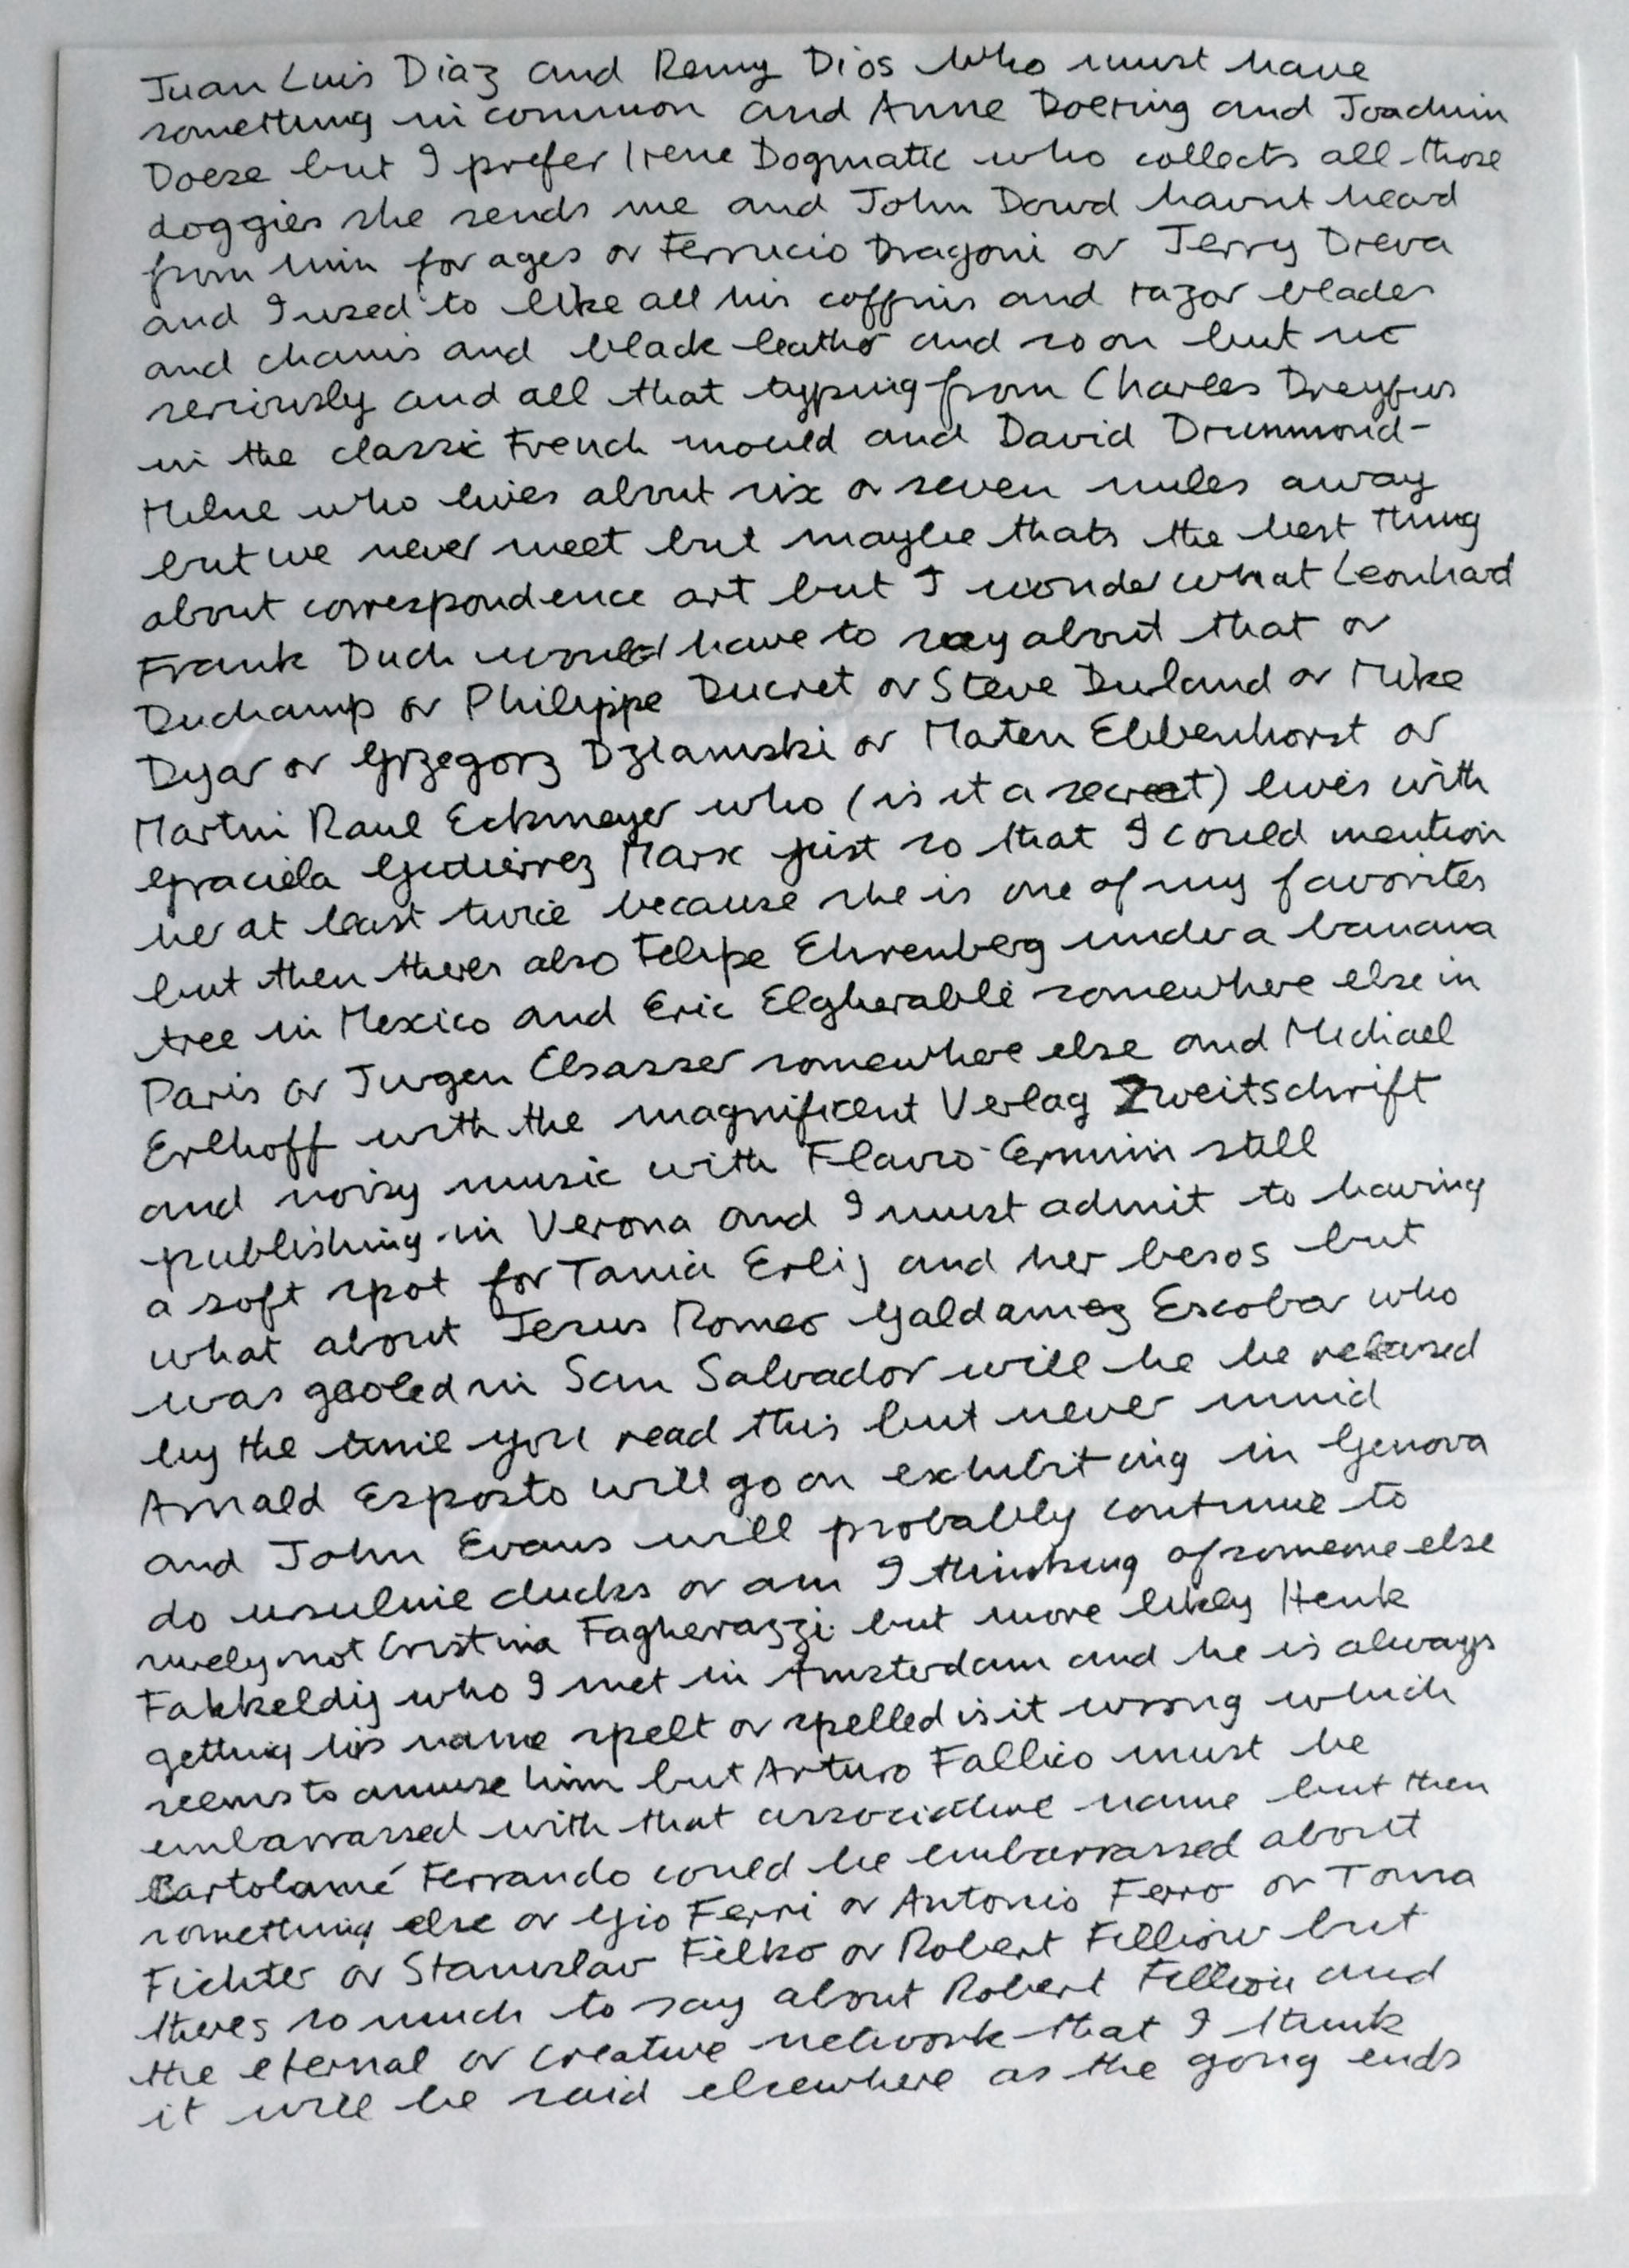 Juan Luis Diaz and Remy Dios who must have
something in common and Anne Doering and Joachim
Doese but I prefer Irene Dogmatic who collects all those
doggies she sends me and John Dowd havnt heard
from him for ages or Ferrucio Dragoni or Jerry Dreva
and I used to like all his coffins and razor blades
and chains and black leather and so on but not
seriously and all that typing from Charles Dreyfus
in the classic French mould and David Drummond-
Milne who lives about six or seven miles away
but we never meet but maybe thats the best thing
about correspondence art but I wonder what Leonhard
Frank Duch would have to say about that or
Duchamp or Philippe Ducret or Steve Durland or Mike
Dyar or Grzegorz Dziamski or Maten Ebbenhorst or
Martin Raul Eckmeyer who (is it a secret) lives with
Graciela Gutierrez Marx just so that I could mention
her at least twice because she is one of my favorites
but then theres also Felipe Ehrenberg under a banana
tree in Mexico and Eric Elgherabli somewhere else in
Paris or Jurgen Elsasser somewhere else and Michael
Erlhoff with the magnificent Verlag Zweitschrift
and noisy music with Flavio Ermini still
publishing in Verona and I must admit to having
a soft spot for Tania Erlij and her besos but
what about Jesus Romeo Galdamez Escobar who
was gaoled in San Salvador will he be released
by the time you read this but never mind
Arnald Esposto will go on exhibiting in Genova
and John Evans will probably continue to
do ducks or am I thinking of someone else
surely not Cristina Fagherazzi but more likely Henk
Fakkeldij who I met in Amsterdam and he is always
getting his name spelt or spelled is it wrong which
seems to amuse him but Arturo Fallico must be
embarrassed with that associative name but then
Bartolamé Ferrando could be embarrassed about
something else or Gio Ferri or Antonio Ferro or Toma
Fichter or Stanislav Filko or Robert Filliou but
theres so much to say about Robert Filliou and
the eternal or creative network that I think
it will be said elsewhere as the gong ends